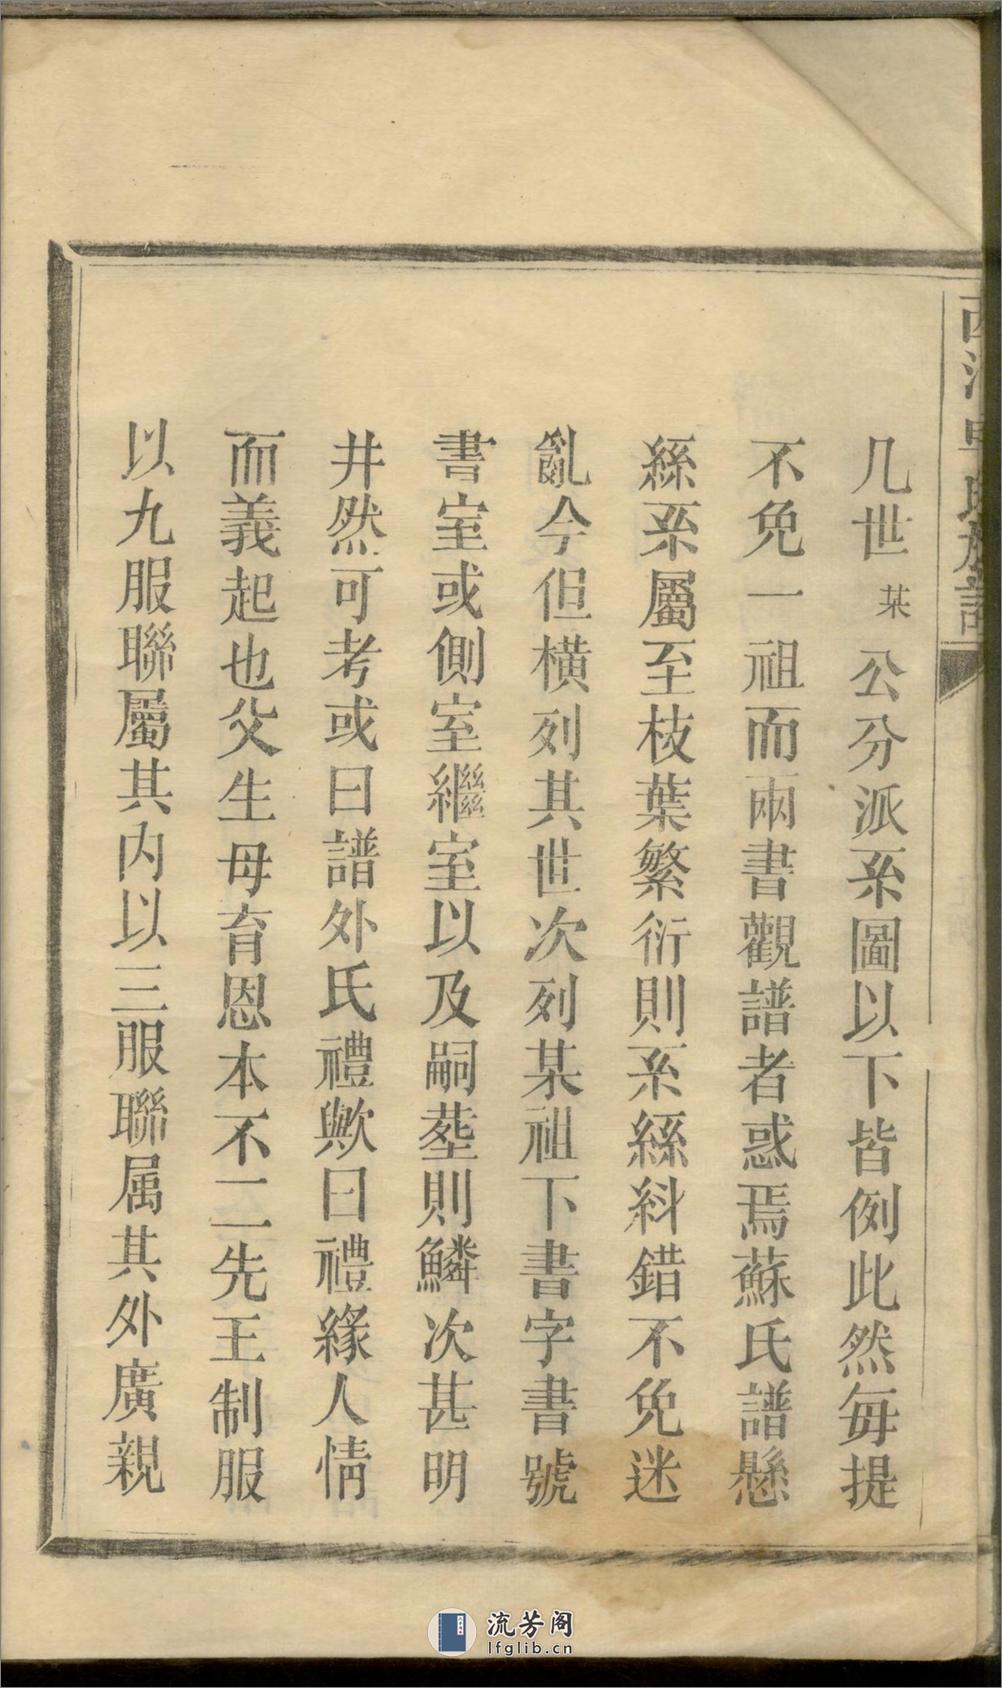 几世某公分派系圖以下皆例此然每提
不免一祖而兩書觀譜者惑焉蘇氏譜懸
絲系屬至枝葉繁衍則系絲糾錯不免迷
亂今但橫列其世次列某祖下書字書號
書室或側室繼室以及嗣塟則鱗次甚明
井然可考或曰譜外氏禮歟曰禮緣人情
而義起也父生母育恩本不二先王制服
以九服聯屬其内以三服聯属其外廣親
流芳阁
lfglib.cn